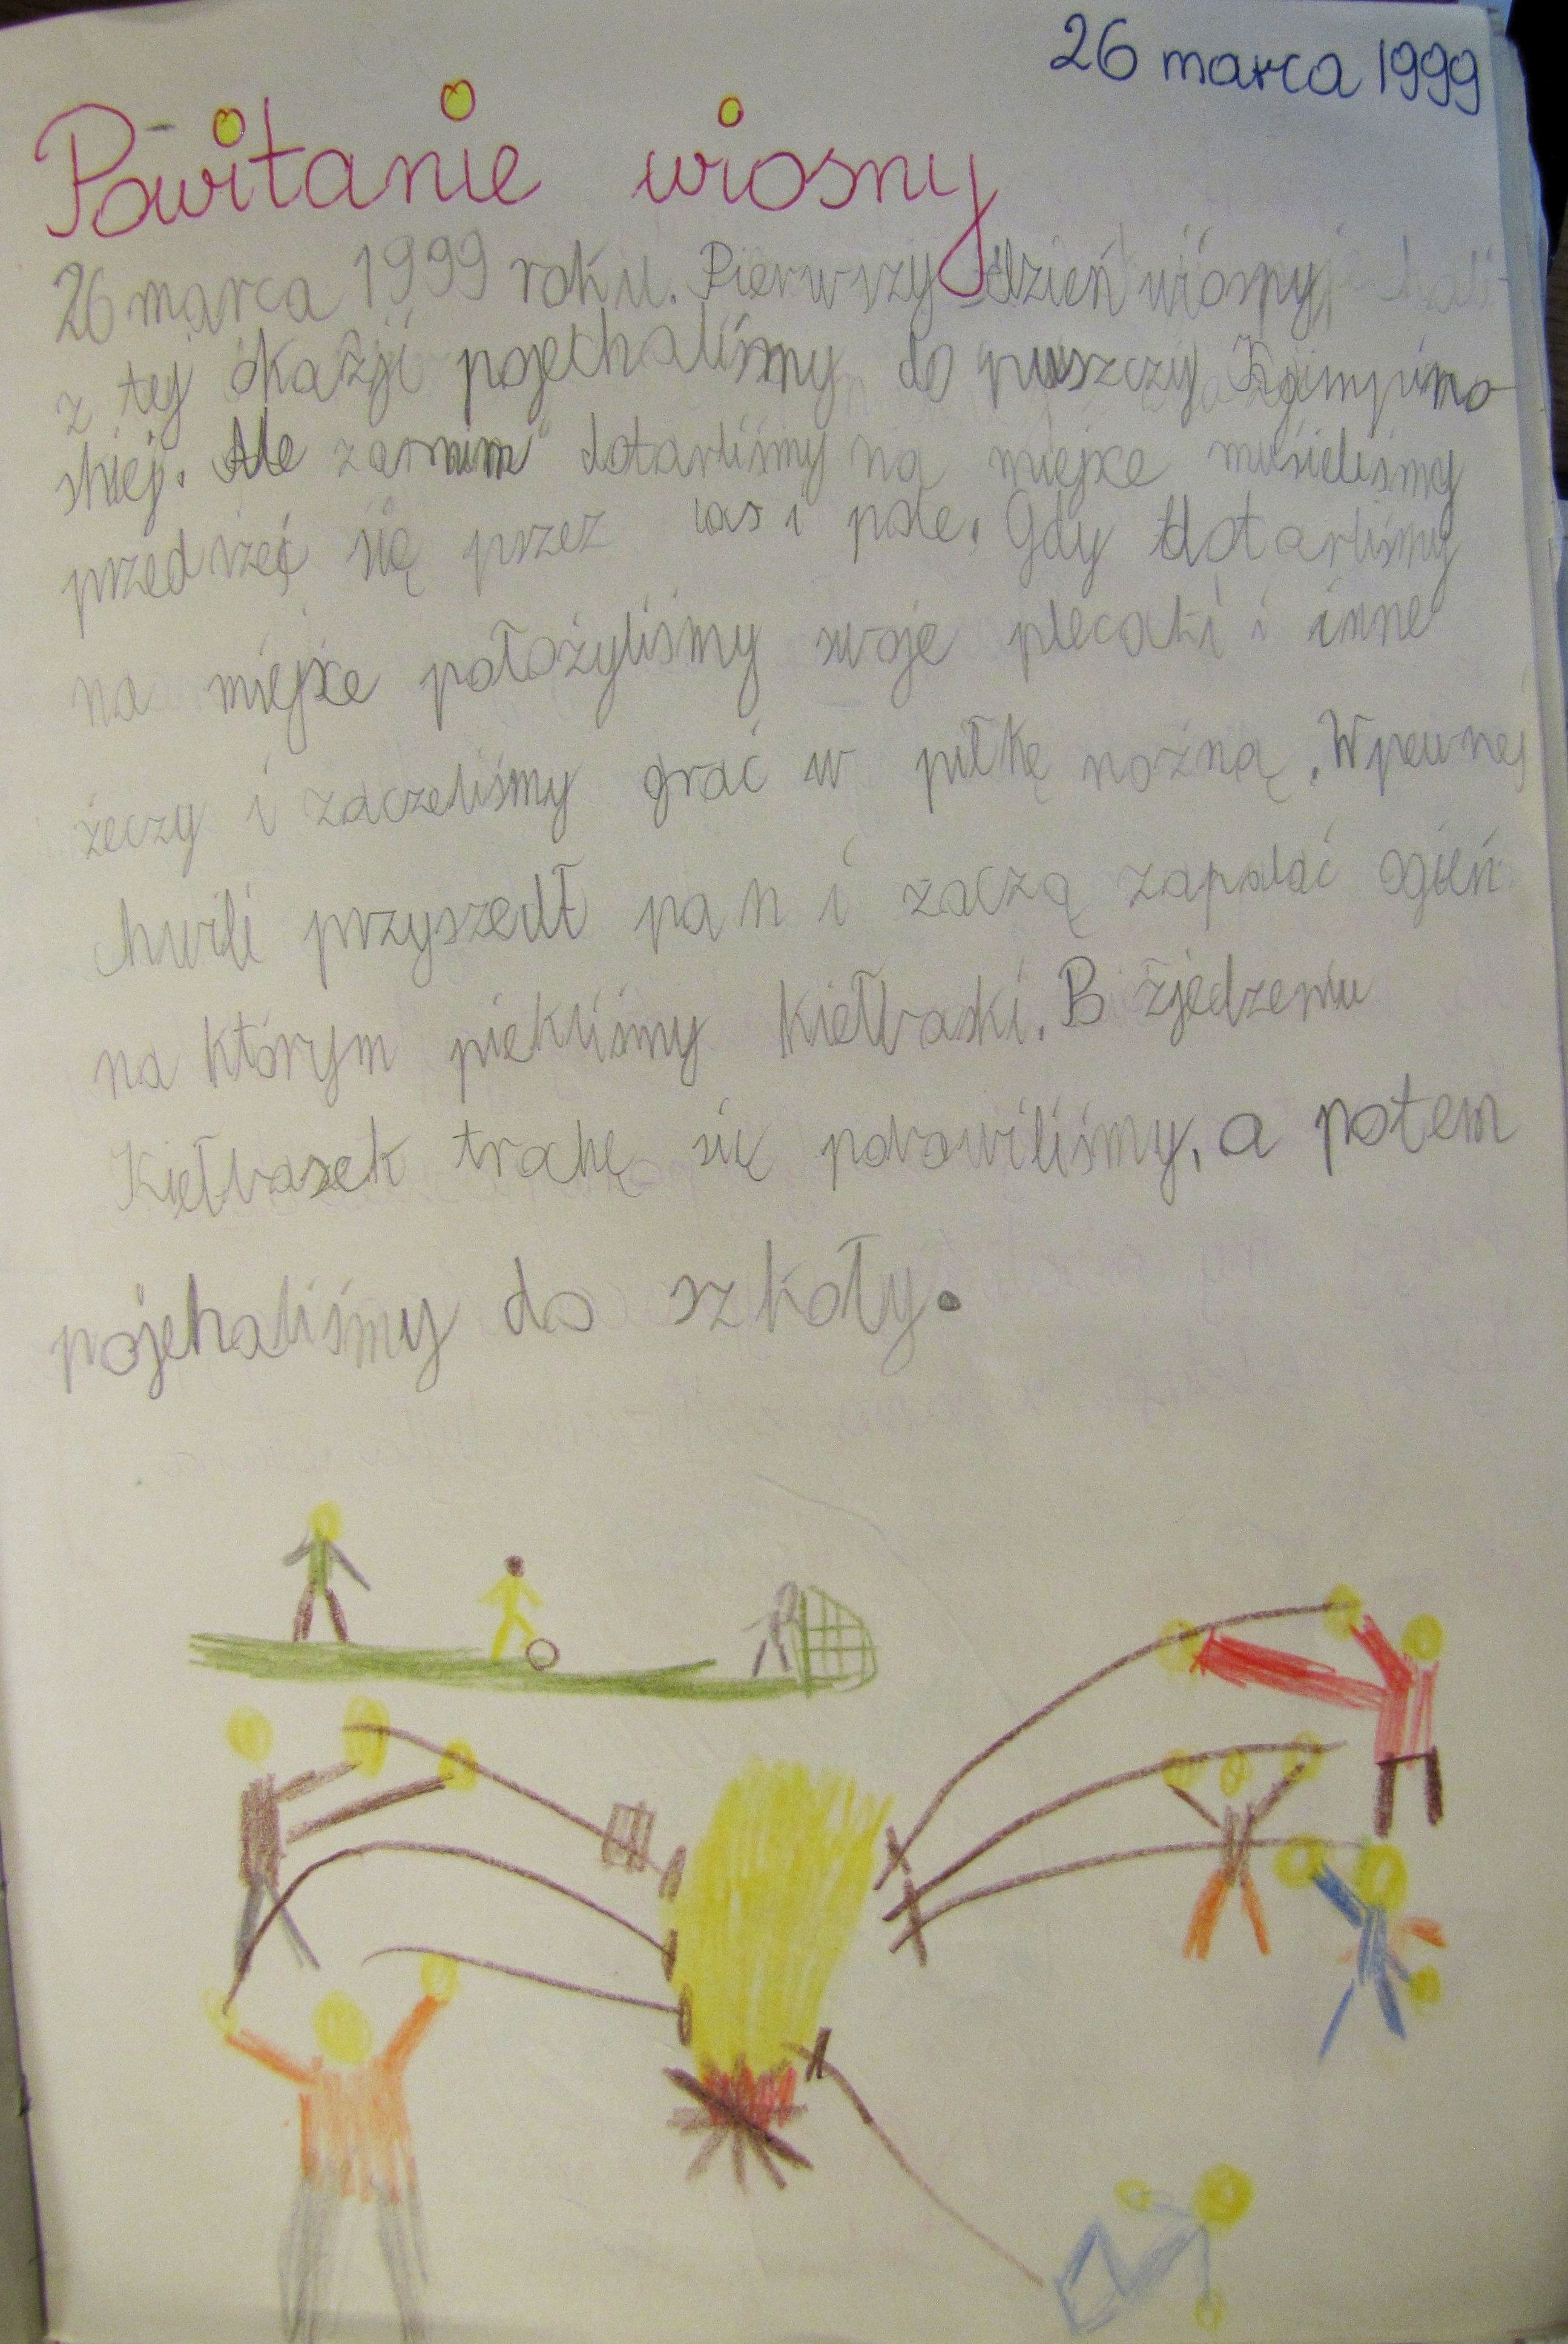 26 marca 1999
Powitanie wiosny
26 marca 1999 roku. Pierwszy dzień wiosny,
z tej okazji pojechaliśmy do puszczy Kampino
skiej. Ale zanim dotarliśmy na miejxe musieliśmy
przedrzeć się przez las i pole. Gdy dotarliśmy
na miejxe położyliśmy swoje plecaki i inne
żeczy i zaczeliśmy grać w piłkę nożną. W pewnej
chwili przyszedł pan i zaczą zapalać ogień
na którym piekliśmy kiełbaski. Po zjedzeniu
kiełbasek trohę się pobawiliśmy, a potem
pojehaliśmy do szkoły.